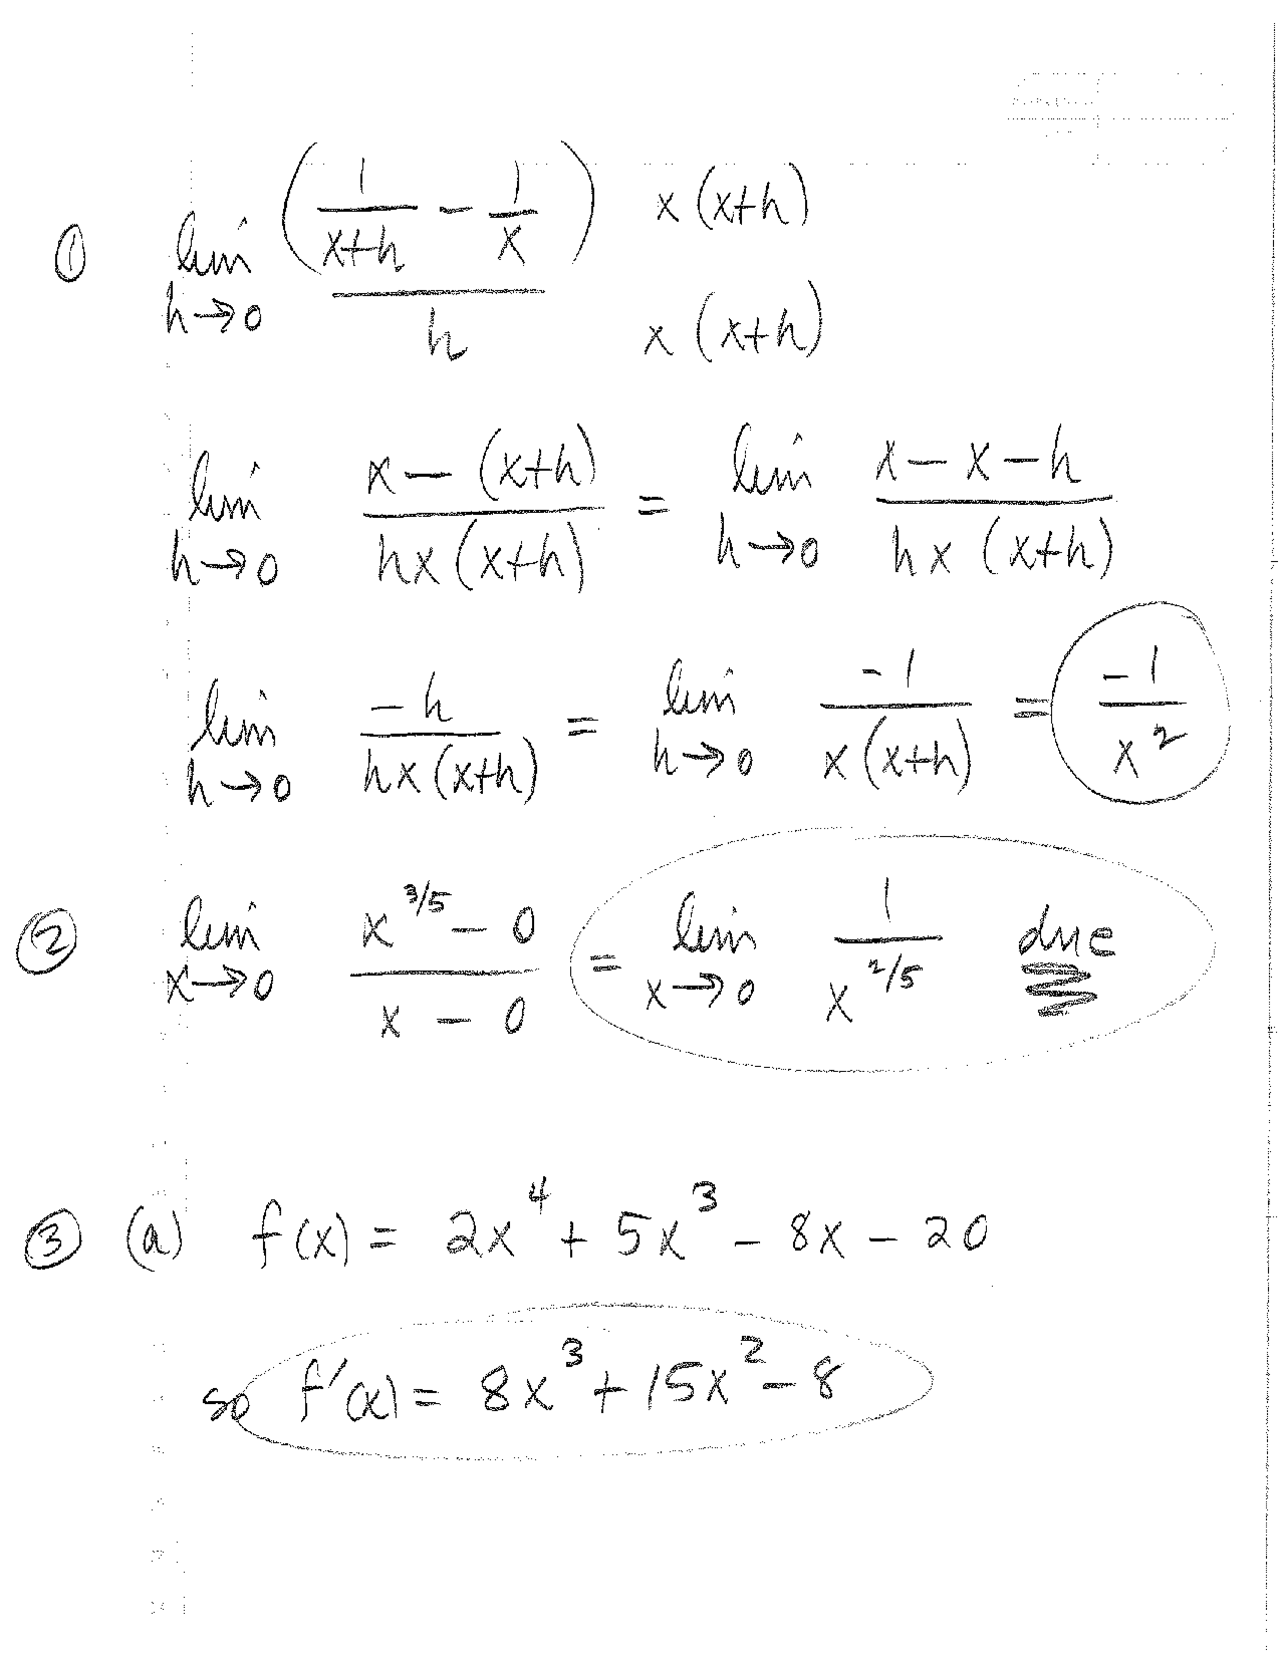 ① lim h→0 (1/(x+h) - 1/x) / h   x(x+h) / x(x+h)
lim h→0 (x-(x+h)) / (hx(x+h)) = lim h→0 (x-x-h) / (hx(x+h))
lim h→0 -h / (hx(x+h)) = lim h→0 -1 / (x(x+h)) = -1/x²
② lim x→0 (x^(3/5) - 0) / (x - 0) = lim x→0 1 / x^(2/5) dne
③ (a) f(x) = 2x⁴ + 5x³ - 8x - 20
so f'(x) = 8x³ + 15x² - 8